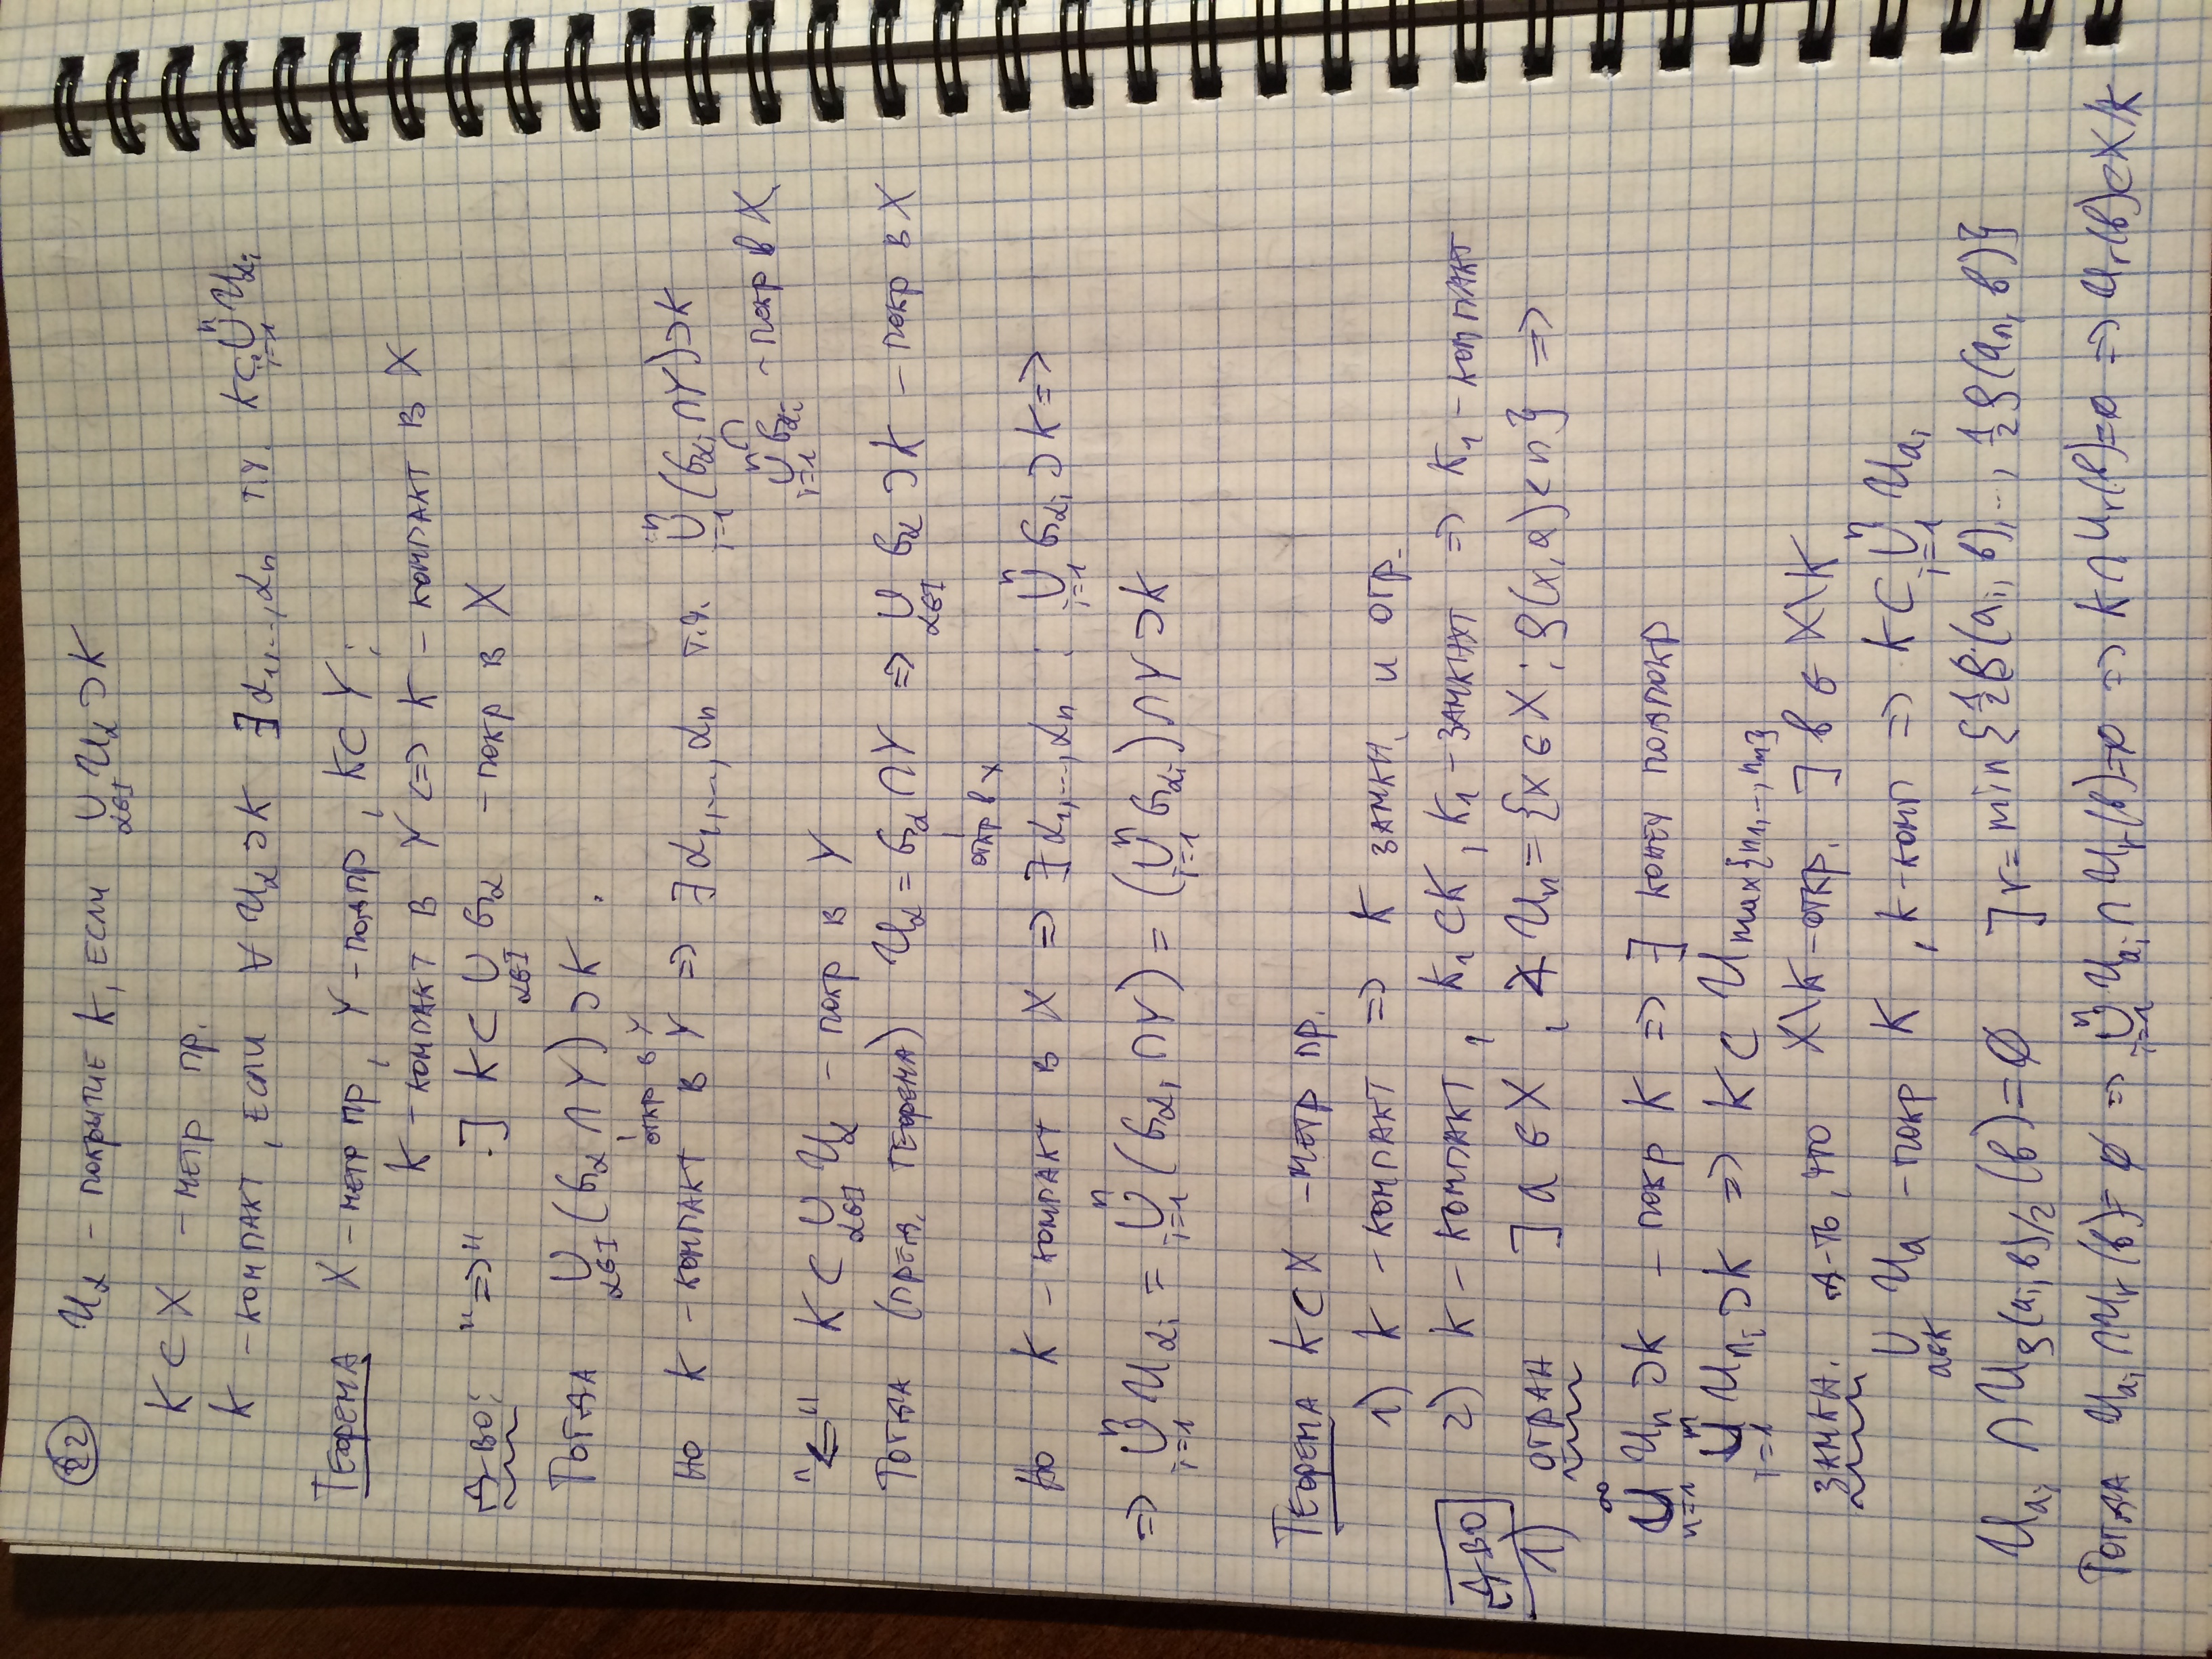 22 U_α – покрытие K, если ∪_{α∈I} U_α ⊃ K
K ⊂ X – метр пр.
K – компакт, если ∀ U_α ⊃ K ∃ α_1,...,α_n т.ч. K ⊂ ∪_{i=1}^n U_{α_i}
Теорема X – метр пр, Y – подпр, K ⊂ Y;
K – компакт в Y <=> K – компакт в X
Д-во: "=>" ] K ⊂ ∪_{α∈I} G_α – покр в X
Тогда ∪_{α∈I} (G_α ∩ Y) ⊃ K.
откр в Y
но K – компакт в Y => ∃ α_1,...,α_n т.ч. ∪_{i=1}^n (G_{α_i} ∩ Y) ⊃ K
∩
∪_{i=1}^n G_{α_i} – покр в X
"<=" K ⊂ ∪_{α∈I} U_α – покр в Y
Тогда (пред. теорема) U_α = G_α ∩ Y => ∪_{α∈I} G_α ⊃ K – покр в X
откр в X
Но K – компакт в X => ∃ α_1,...,α_n : ∪_{i=1}^n G_{α_i} ⊃ K =>
=> ∪_{i=1}^n U_{α_i} = ∪_{i=1}^n (G_{α_i} ∩ Y) = (∪_{i=1}^n G_{α_i}) ∩ Y ⊃ K
Теорема K ⊂ X – метр пр.
1) K – компакт => K замкн. и огр.
2) K – компакт, K_1 ⊂ K, K_1 – замкнут => K_1 – компакт
Д-во
1) огран ] a ∈ X, ∡ U_n = {x ∈ X : ρ(x,a) < n} =>
∪_{n=1}^∞ U_n ⊃ K – покр K => ∃ конеч подпокр
∪_{i=1}^m U_{n_i} ⊃ K => K ⊂ U_{max{n_1,...,n_m}}
замкн. д-ть, что X\K – откр. ] b ∈ X\K
∪_{a∈K} U_a – покр K, K – комп => K ⊂ ∪_{i=1}^n U_{a_i}
U_{a_i} ∩ U_{ρ(a_i,b)/2}(b) = ∅ ] r = min{½ρ(a_i,b),..., ½ρ(a_n,b)}
Тогда U_{a_i} ∩ U_r(b) = ∅ => ∪_{i=1}^n U_{a_i} ∩ U_r(b) = ∅ => K ∩ U_r(b) = ∅ => U_r(b) ⊂ X\K